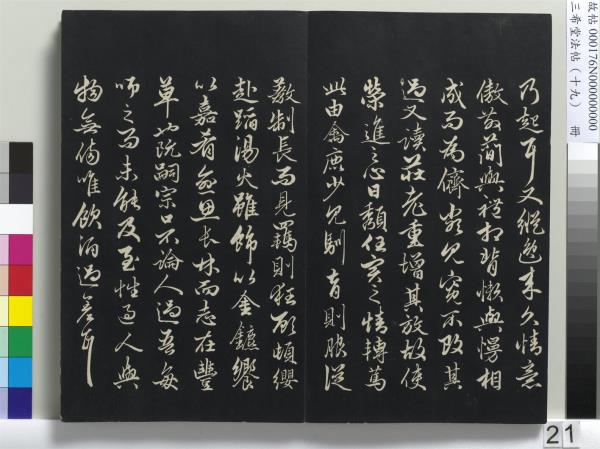 乃起耳又縱逸來久情意
傲散簡與禮相背懶與慢相
成而為儕類見寬不攻其
過又讀莊老重增其放故使
榮進之心日頹任實之情轉篤
此由禽鹿少見馴育則服從
教制長而見羈則狂顧頓纓
赴蹈湯火雖飾以金鑣饗
以嘉肴愈思長林而志在豐
草也阮嗣宗口不論人過吾每
師之而未能及至性過人與
物無傷唯飲酒過差耳
故帖 000176N000000000
三希堂法帖(十九) 冊
21